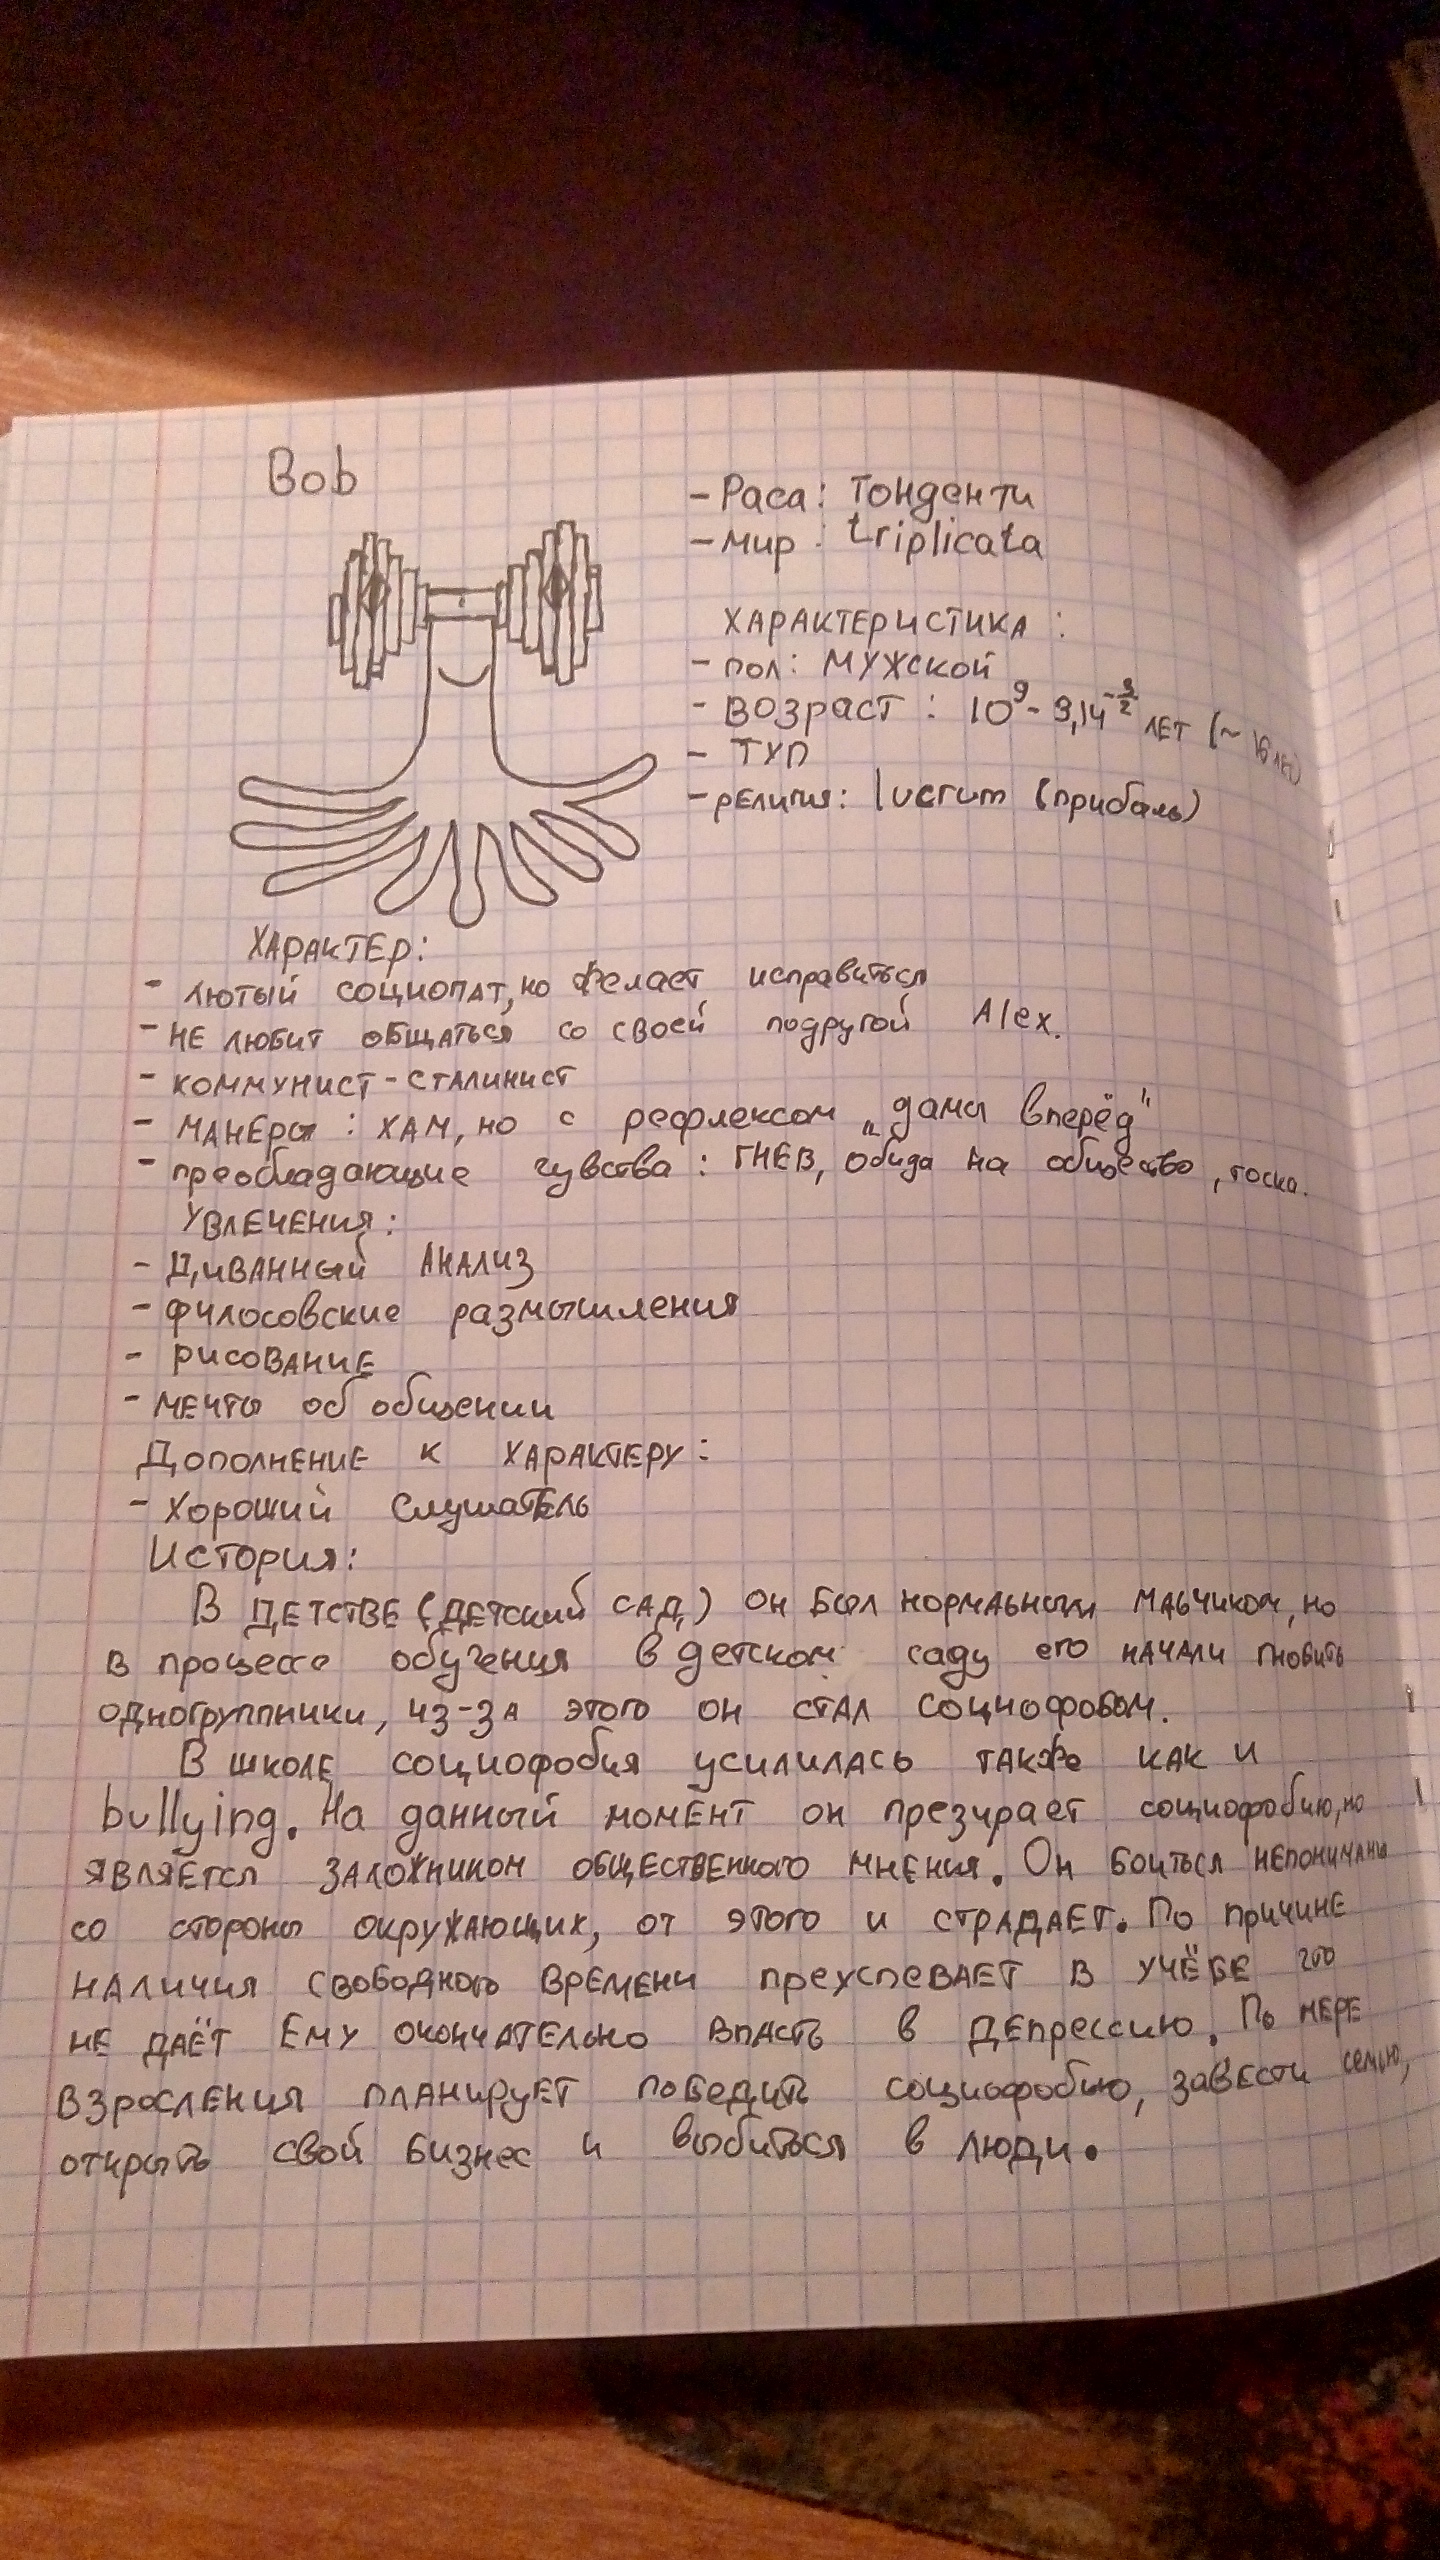 Bob
- Раса: Тонденти
- мир: triplicata
ХАРАКТЕРИСТИКА:
- пол: МУЖСКОЙ
- ВОЗРАСТ: 10^9 - 3,14^-3/2 ЛЕТ (~ 16 лет)
- ТУП
- РЕЛИГИЯ: lucrum (прибыль)
ХАРАКТЕР:
- лютый социопат, но желает исправиться
- НЕ ЛЮБИТ ОБЩАТЬСЯ со своей подругой Alex.
- КОММУНИСТ-СТАЛИНИСТ
- МАНЕРЫ: ХАМ, но с рефлексом „дамы вперёд"
- преобладающие чувства: ГНЕВ, обида на общество, тоска.
УВЛЕЧЕНИЯ:
- ДИВАННЫЙ АНАЛИЗ
- филосовские размышления
- РИСОВАНИЕ
- МЕЧТЫ об общении
Дополнение к ХАРАКТЕРУ:
- Хороший слушатель
История:
В ДЕТСТВЕ (ДЕТСКИЙ САД) он был нормальным мальчиком, но
в процессе обучения в детском саду его НАЧАЛИ гнобить
одногруппники, из-за этого он стал социофобом.
В школе социофобия усилилась также как и
bullying. На данный момент он презирает социофобию, но
является заложником общественного мнения. Он боиться непонимания
со стороны окружающих, от этого и страдает. По причине
наличия свободного времени преуспевает в учёбе это
не даёт ему окончательно впасть в депрессию. По мере
взросления планирует победить социофобию, завести семью,
открыть свой бизнес и выбиться в люди.